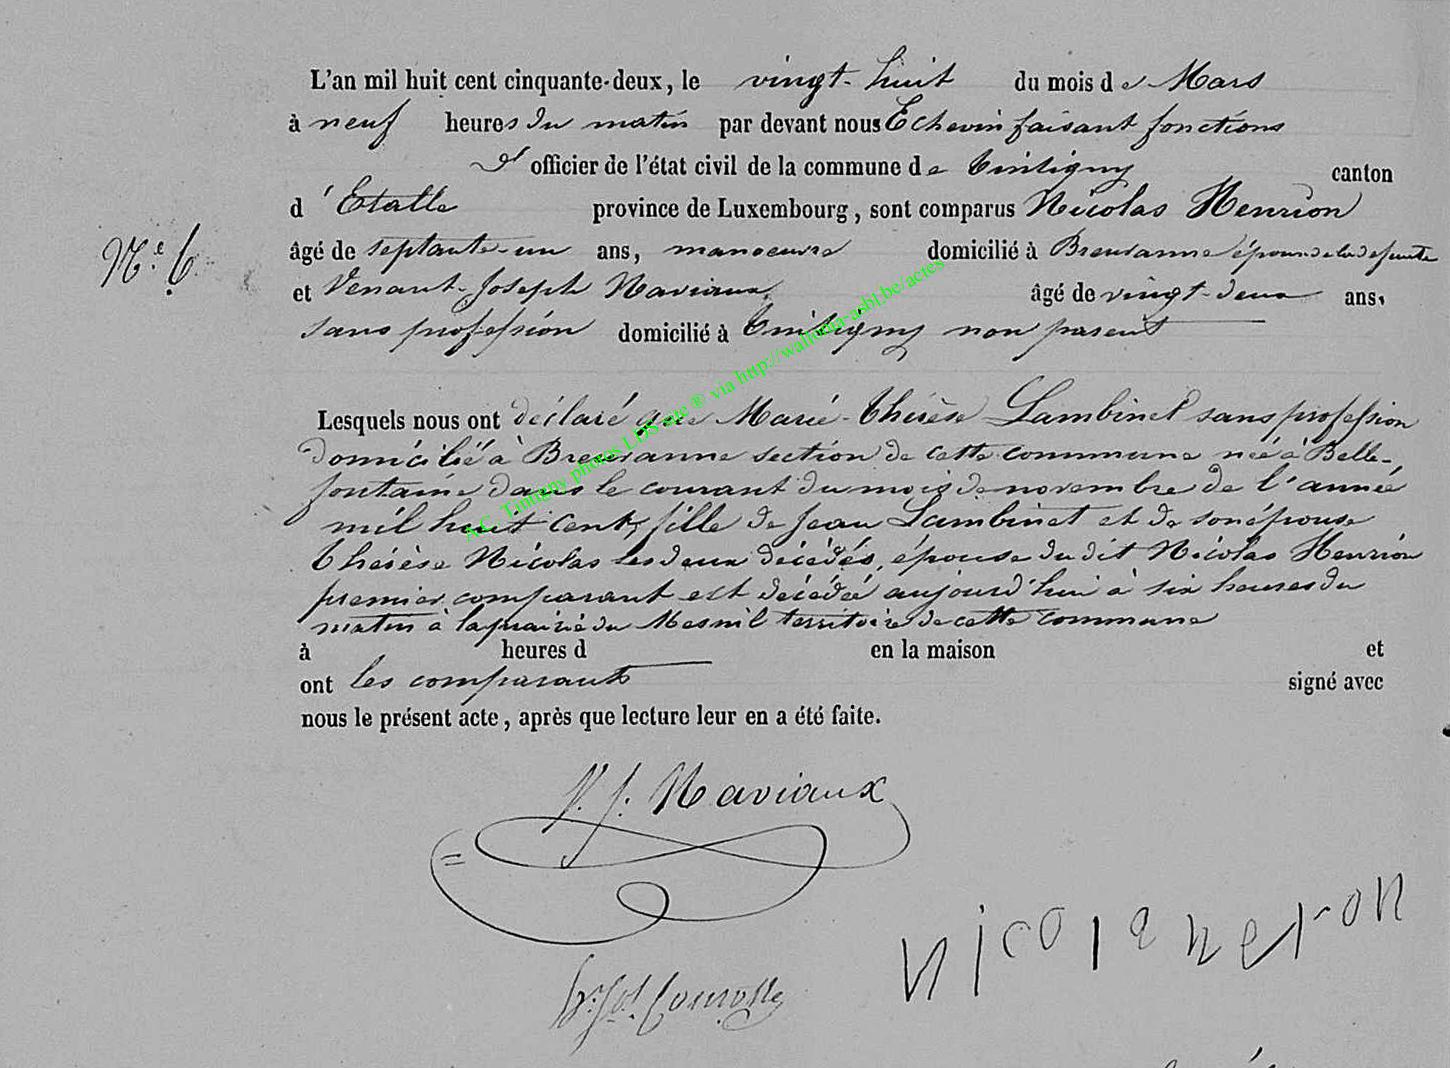 L'an mil huit cent cinquante-deux, le vingt-huit du mois de Mars
à neuf heures du matin par devant nous Echevin faisant fonctions
d' officier de l'état civil de la commune de Tintigny canton
d'Etalle province de Luxembourg, sont comparus Nicolas Henrion
N.e 6.
âgé de septante-un ans, manoeuvre domicilié à Breuvanne époux de la defunte
et Venant-Joseph Naviaux âgé de vingt-deux ans,
sans profession domicilié à Tintigny non parent
Lesquels nous ont déclaré que Marie-Thérèse Lambinet sans profession
domicilié à Breuvanne section de cette commune née à Belle-
fontaine dans le courant du mois de novembre de l'année
mil huit cent, fille de Jean Lambinet et de son épouse
Thérèse Nicolas les deux décédés, épouse du dit Nicolas Henrion
premier comparant est décédée aujourd'hui à six heures du
matin à la prairie du Mesnil territoire de cette commune
à heures d en la maison et
ont les comparants signé avec
nous le présent acte, après que lecture leur en a été faite.
A.C. Tintigny photos LDS site ® via http://wallonia-asbl.be/actes
V. J. Naviaux
nicola neron